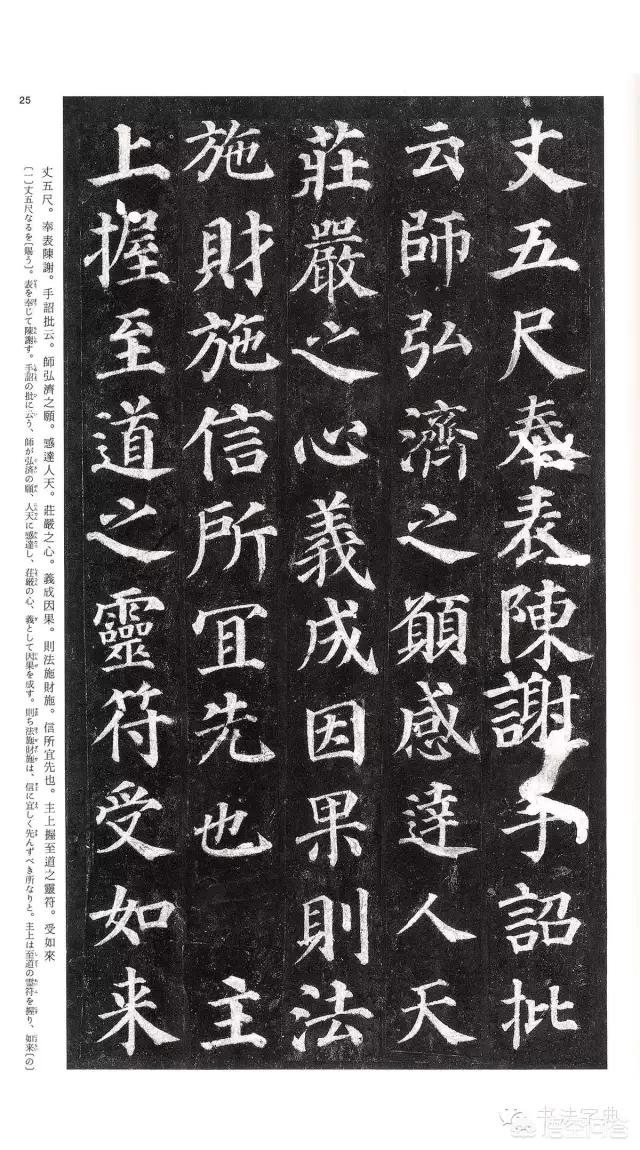 丈五尺奉表陳謝手詔批
云師弘濟之願感達人天
莊嚴之心義成因果則法
施財施信所宜先也主
上握至道之靈符受如来
丈五尺。奉表陳謝。手詔批云。師弘濟之願。感達人天。莊嚴之心。義成因果。則法施財施。信所宜先也。主上握至道之靈符。受如來
〔一〕丈五尺なるを〔賜う〕。表を奉じて陳謝す。手詔の批に云う、師が弘済の願、人天に感達し、荘厳の心、義として因果を成す。則ち法施財施は、信に宜しく先んずべき所なりと。主上は至道の霊符を握り、如来〔の〕
25
书法字典